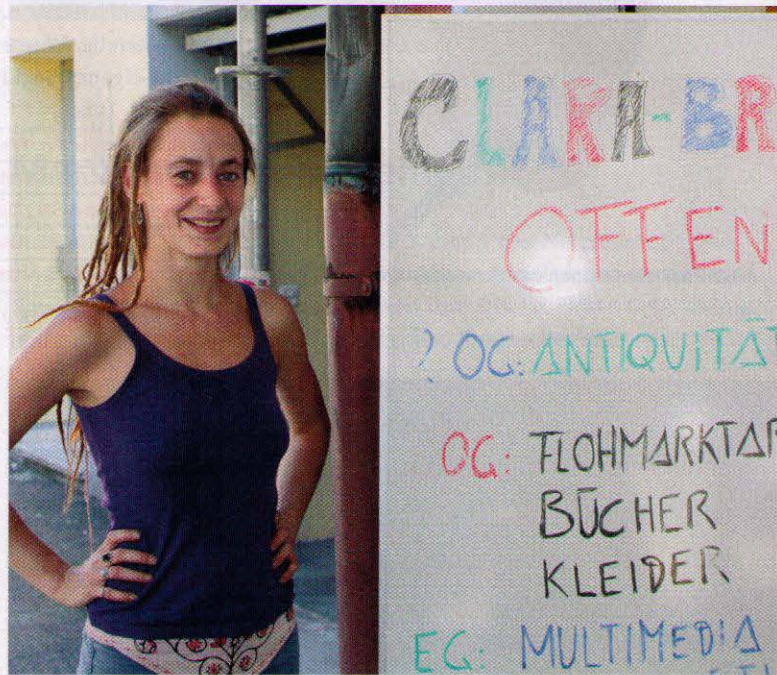 CLARA-BR
OFFEN
2 OG: ANTIQUITÄT
OG: FLOHMARKTAR
BÜCHER
KLEIDER
EG: MULTIMEDIA